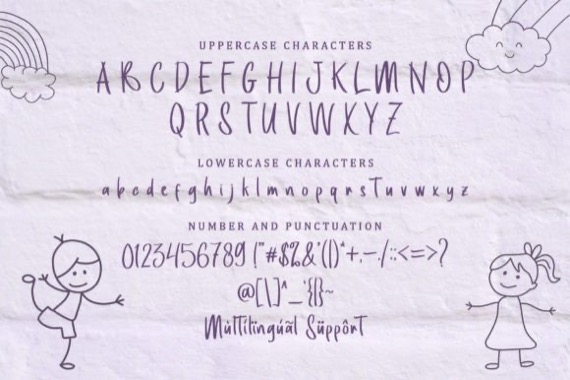 UPPERCASE CHARACTERS
A B C D E F G H I J K L M N O P
Q R S T U V W X Y Z
LOWERCASE CHARACTERS
a b c d e f g h i j k l m n o p q r s t u v w x y z
NUMBER AND PUNCTUATION
0123456789 !"#$%&'()*+,-./:;<=>?
@[\]^_`{|}~
Múltílíngúãl Süppôrt